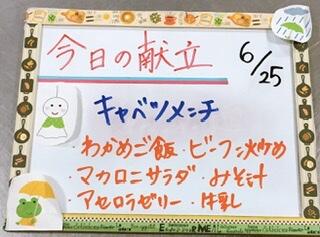 今日の献立
6/25
キャベツメンチ
・わかめご飯・ビーフン炒め
・マカロニサラダ・みそ汁
・アセロラゼリー・牛乳